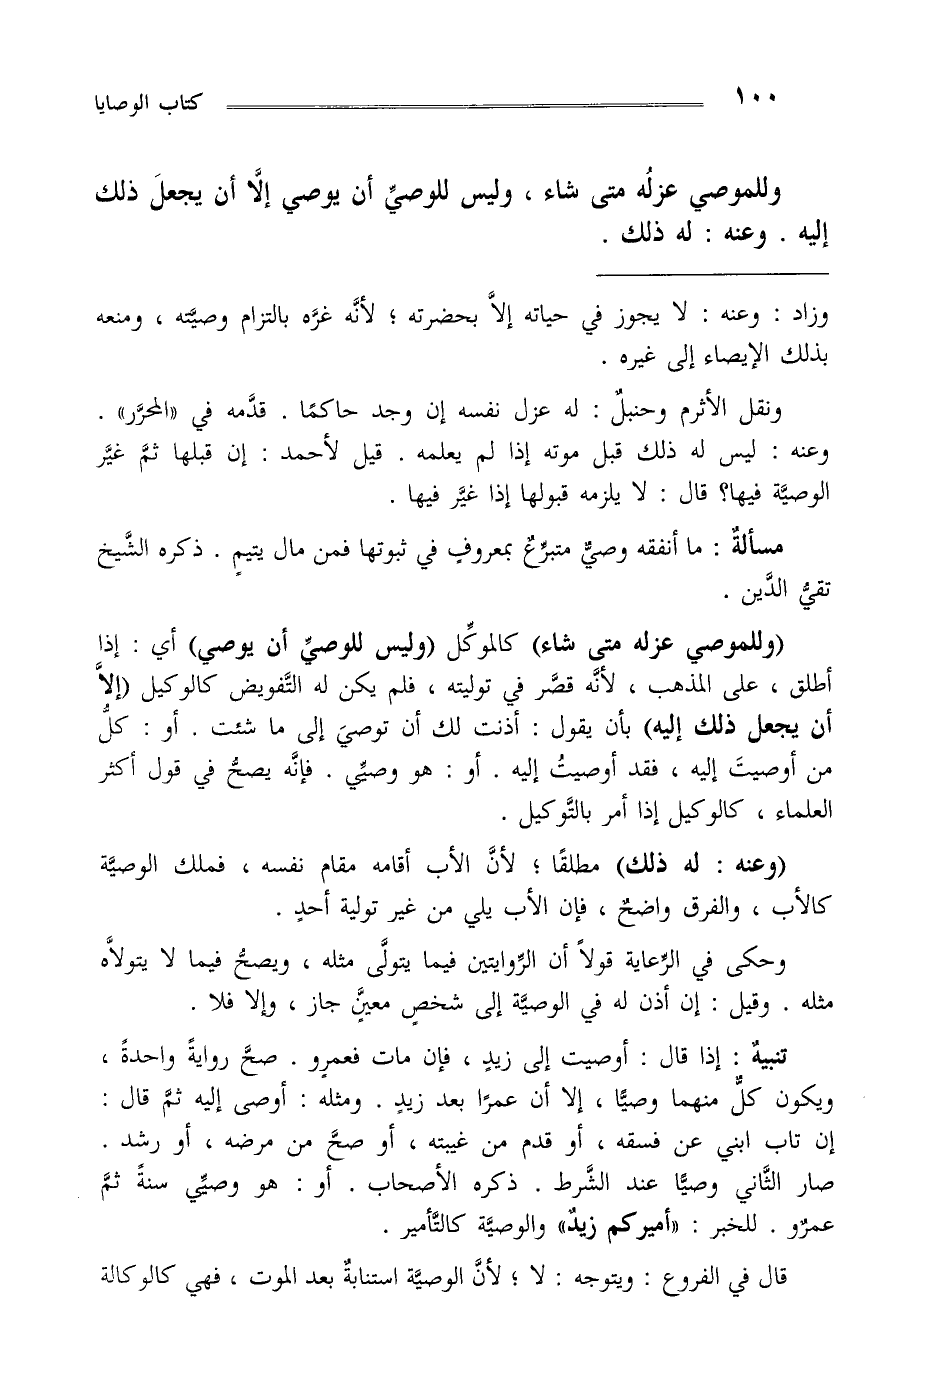 ١٠٠ كتاب الوصايا
وللموصي عزلُه متى شاء ، وليس للوصيِّ أن يوصي إلَّا أن يجعلَ ذلك
إليه . وعنه : له ذلك .
وزاد : وعنه : لا يجوز في حياته إلاَّ بحضرته ؛ لأنَّه غرَّه بالتزام وصيَّته ، ومنعه
بذلك الإيصاء إلى غيره .
ونقل الأثرم وحنبلٌ : له عزل نفسه إن وجد حاكمًا . قدَّمه في «المحرَّر» .
وعنه : ليس له ذلك قبل موته إذا لم يعلمه . قيل لأحمد : إن قبلها ثمَّ غيَّر
الوصيَّة فيها؟ قال : لا يلزمه قبولها إذا غيَّر فيها .
مسألةٌ : ما أنفقه وصيٌّ متبرِّعٌ بمعروفٍ في ثبوتها فمن مال يتيمٍ . ذكره الشَّيخ
تقيُّ الدَّين .
(وللموصي عزله متى شاء) كالموكِّل (وليس للوصيِّ أن يوصي) أي : إذا
أطلق ، على المذهب ، لأنَّه قصَّر في توليته ، فلم يكن له التَّفويض كالوكيل (إلاَّ
أن يجعل ذلك إليه) بأن يقول : أذنت لك أن توصيَ إلى ما شئت . أو : كلُّ
من أوصيتَ إليه ، فقد أوصيتُ إليه . أو : هو وصيِّي . فإنَّه يصحُّ في قول أكثر
العلماء ، كالوكيل إذا أمر بالتَّوكيل .
(وعنه : له ذلك) مطلقًا ؛ لأنَّ الأب أقامه مقام نفسه ، فملك الوصيَّة
كالأب ، والفرق واضحٌ ، فإن الأب يلي من غير تولية أحدٍ .
وحكى في الرِّعاية قولاً أن الرِّوايتين فيما يتولَّى مثله ، ويصحُّ فيما لا يتولاَّه
مثله . وقيل : إن أذن له في الوصيَّة إلى شخصٍ معينٍَّ جاز ، وإلا فلا .
تنبيهٌ : إذا قال : أوصيت إلى زيدٍ ، فإن مات فعمرٍو . صحَّ روايةً واحدةً ،
ويكون كلٌّ منهما وصيًّا ، إلا أن عمرًا بعد زيدٍ . ومثله : أوصى إليه ثمَّ قال :
إن تاب ابني عن فسقه ، أو قدم من غيبته ، أو صحَّ من مرضه ، أو رشد .
صار الثَّاني وصيًّا عند الشَّرط . ذكره الأصحاب . أو : هو وصيِّي سنةً ثمَّ
عمرٌو . للخبر : «أميركم زيدٌ» والوصيَّة كالتَّأمير .
قال في الفروع : ويتوجه : لا ؛ لأنَّ الوصيَّة استنابةٌ بعد الموت ، فهي كالوكالة